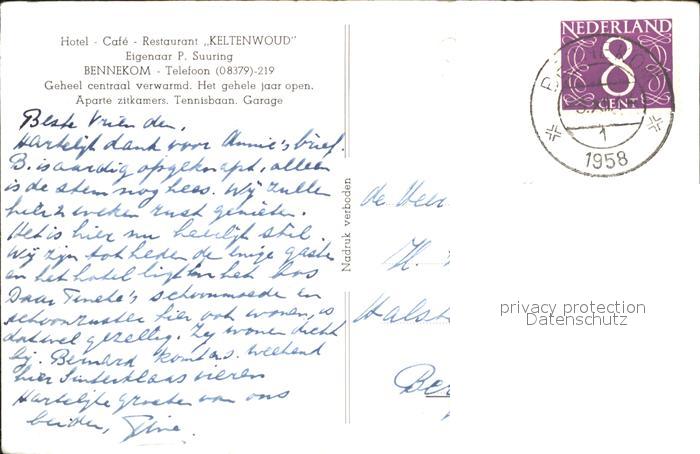 Hotel - Café - Restaurant „KELTENWOUD"
Eigenaar P. Suuring
BENNEKOM - Telefoon (08379)-219
Geheel centraal verwarmd. Het gehele jaar open.
Aparte zitkamers. Tennisbaan. Garage
Beste Vrienden,
Hartelijk dank voor Annie's brief.
B. is aardig opgeknapt, alleen
is de stem nog hees. Wij zullen
hier 2 weken rust genieten.
Het is hier nu heerlijk stil.
Wij zijn tot heden de enige gasten
en het hotel ligt in het bos
Daar schoonmoeder en
schoonzuster hier ook wonen, is
dat wel gezellig. Zij wonen dicht
bij. Bernard komt a.s. weekend
hier Sinterklaas vieren
Hartelijke groeten van ons
beiden, Tine.
Nadruk verboden
NEDERLAND
8
CENT
1
1958
de Heer
H.
Halst
Ber
privacy protection
Datenschutz